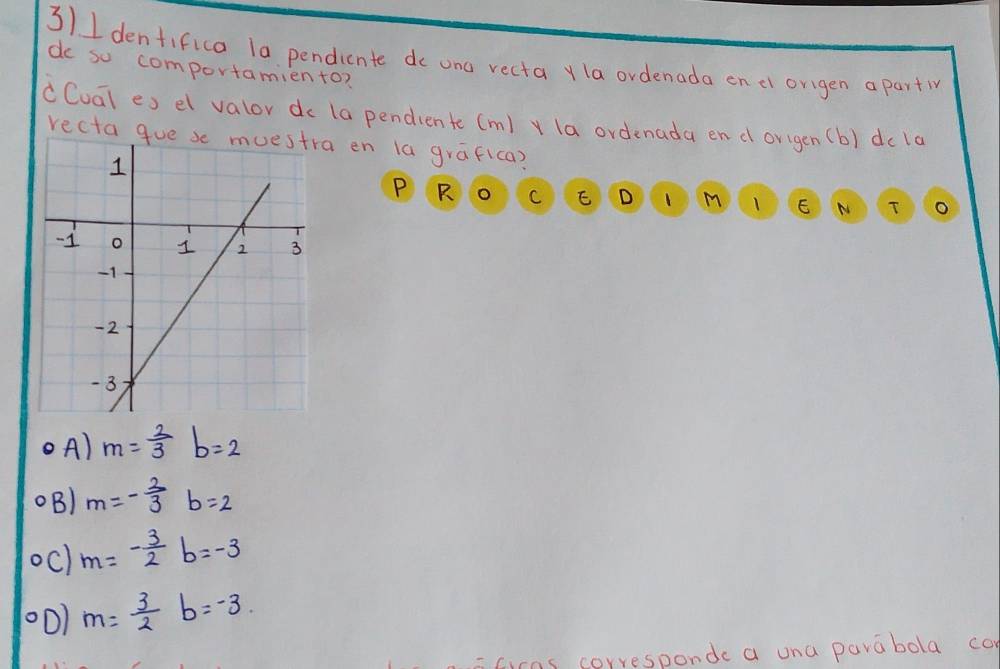 3) Identifica la pendiente de una recta y la ordenada en el origen apartir
de su comportamiento?
¿Cuál es el valor de la pendiente (m) y la ordenada en el origen (b) de la
recta que se muestra en la gráfica?
P R O C E D I M I E N T O
1
-1 0 1 2 3
-1
-2
-3
A) m = 2/3 b=2
B) m = -2/3 b=2
C) m = -3/2 b=-3
D) m = 3/2 b=-3.
corresponde a una parábola